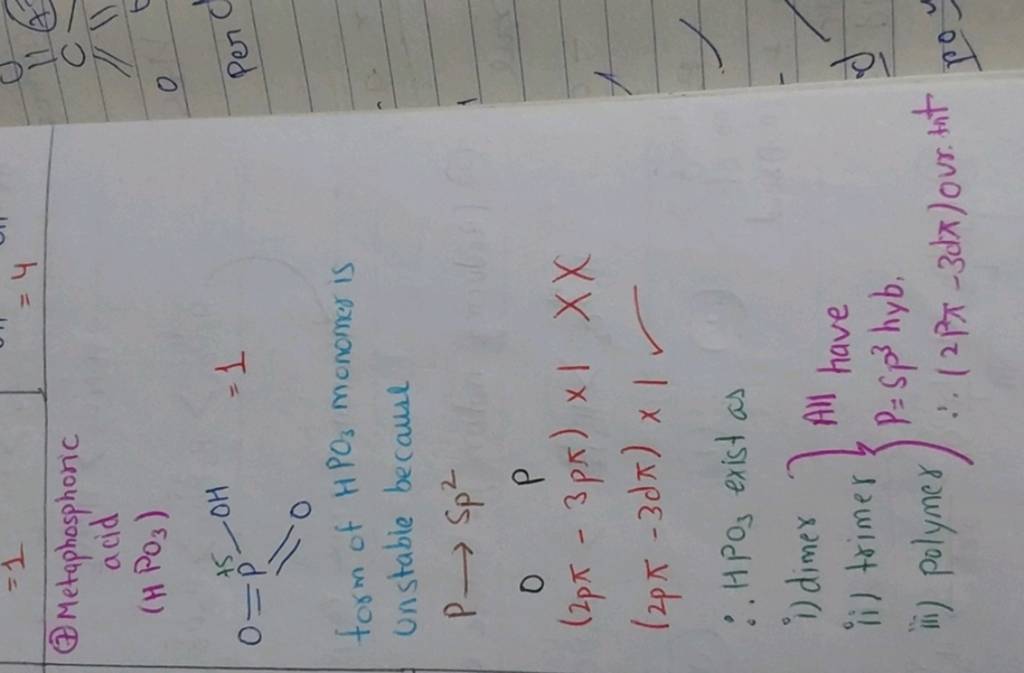 =1
= 4
⑦ Metaphosphoric
acid
(HPO₃)
+5
O=P-OH =1
O
form of HPO₃ monomer is
unstable because
P → Sp²
O P
(2pπ - 3pπ) x 1 X X
(2pπ - 3dπ) x 1 ✓
∴ HPO₃ exist as
i) dimer
ii) trimer
iii) polymer
All have
P = Sp³ hyb.
∴ (2Pπ - 3dπ) ovr. tnt
O
C
O
Pen